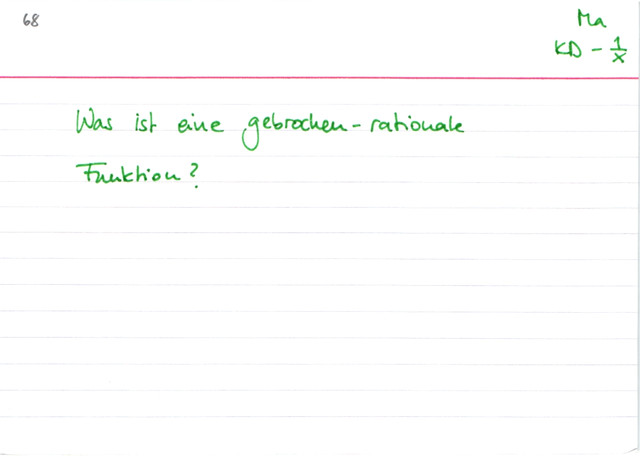 68
Ma
KD - 1/x
Was ist eine gebrochen-rationale
Funktion?